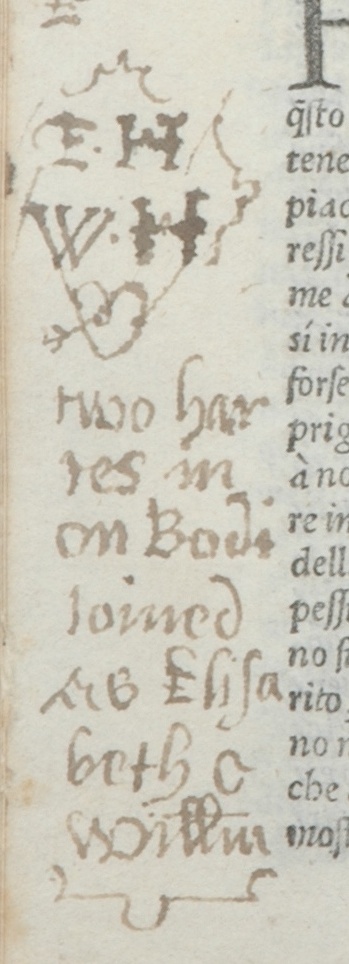 E·H
W·H
two har
tes in
on Bodi
Ioined
As Elisa
beth &
Willm
q̃sto
tene
piac
ressi
me à
sí in
forse
prig
à no
re in
dell
pess
no s
rito
no n
che
most